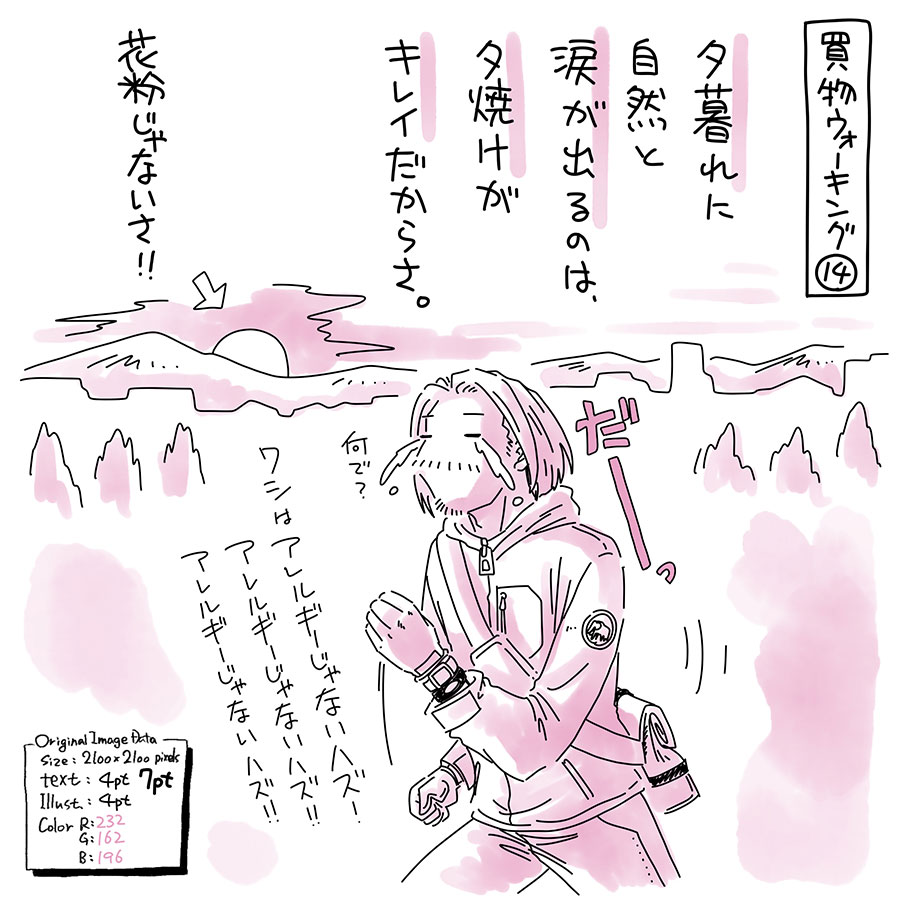 買物ウォーキング⑭
夕暮れに
自然と
涙が出るのは、
夕焼けが
キレイだからさ。
花粉じゃないさ!!
だーっ
何で?
ワシは
アレルギーじゃないハズ!
アレルギーじゃないハズ!!
アレルギーじゃないハズ!!
Original Image Data
Size : 2100×2100 pixels
text : 4pt 7pt
Illust. : 4pt
Color R:232
G:162
B:196